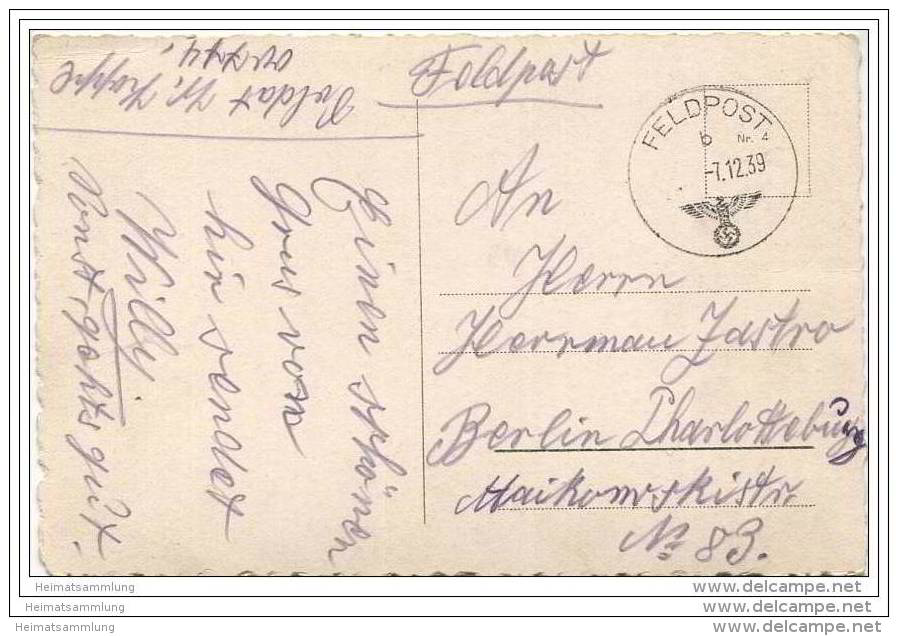 Feldpost
FELDPOST
b Nr. 4
-7.12.39
An
Herrn
Herrman Jastro
Berlin Charlotteburg
Maikowskistr
No 83.
Soldat W. Hoppe
Einen schönen
Grus von
hir sendet
Willi.
Sonst, gehts gut.
Heimatsammlung www.delcampe.net
Heimatsammlung www.delcampe.net
Heimatsammlung www.delcampe.net